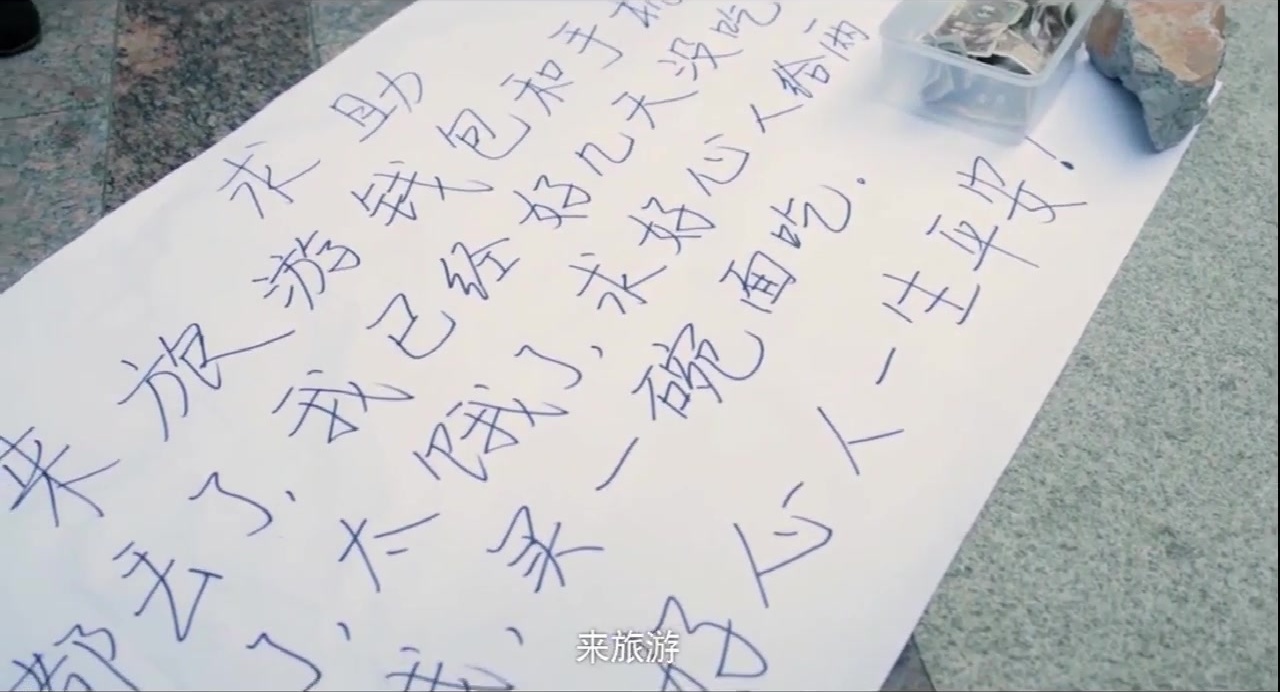 求助
来旅游钱包和手机
都丢了,我已经好几天没吃
了,太饿了,求好心人给俩
钱,买一碗面吃.
好心人一生平安!
来旅游